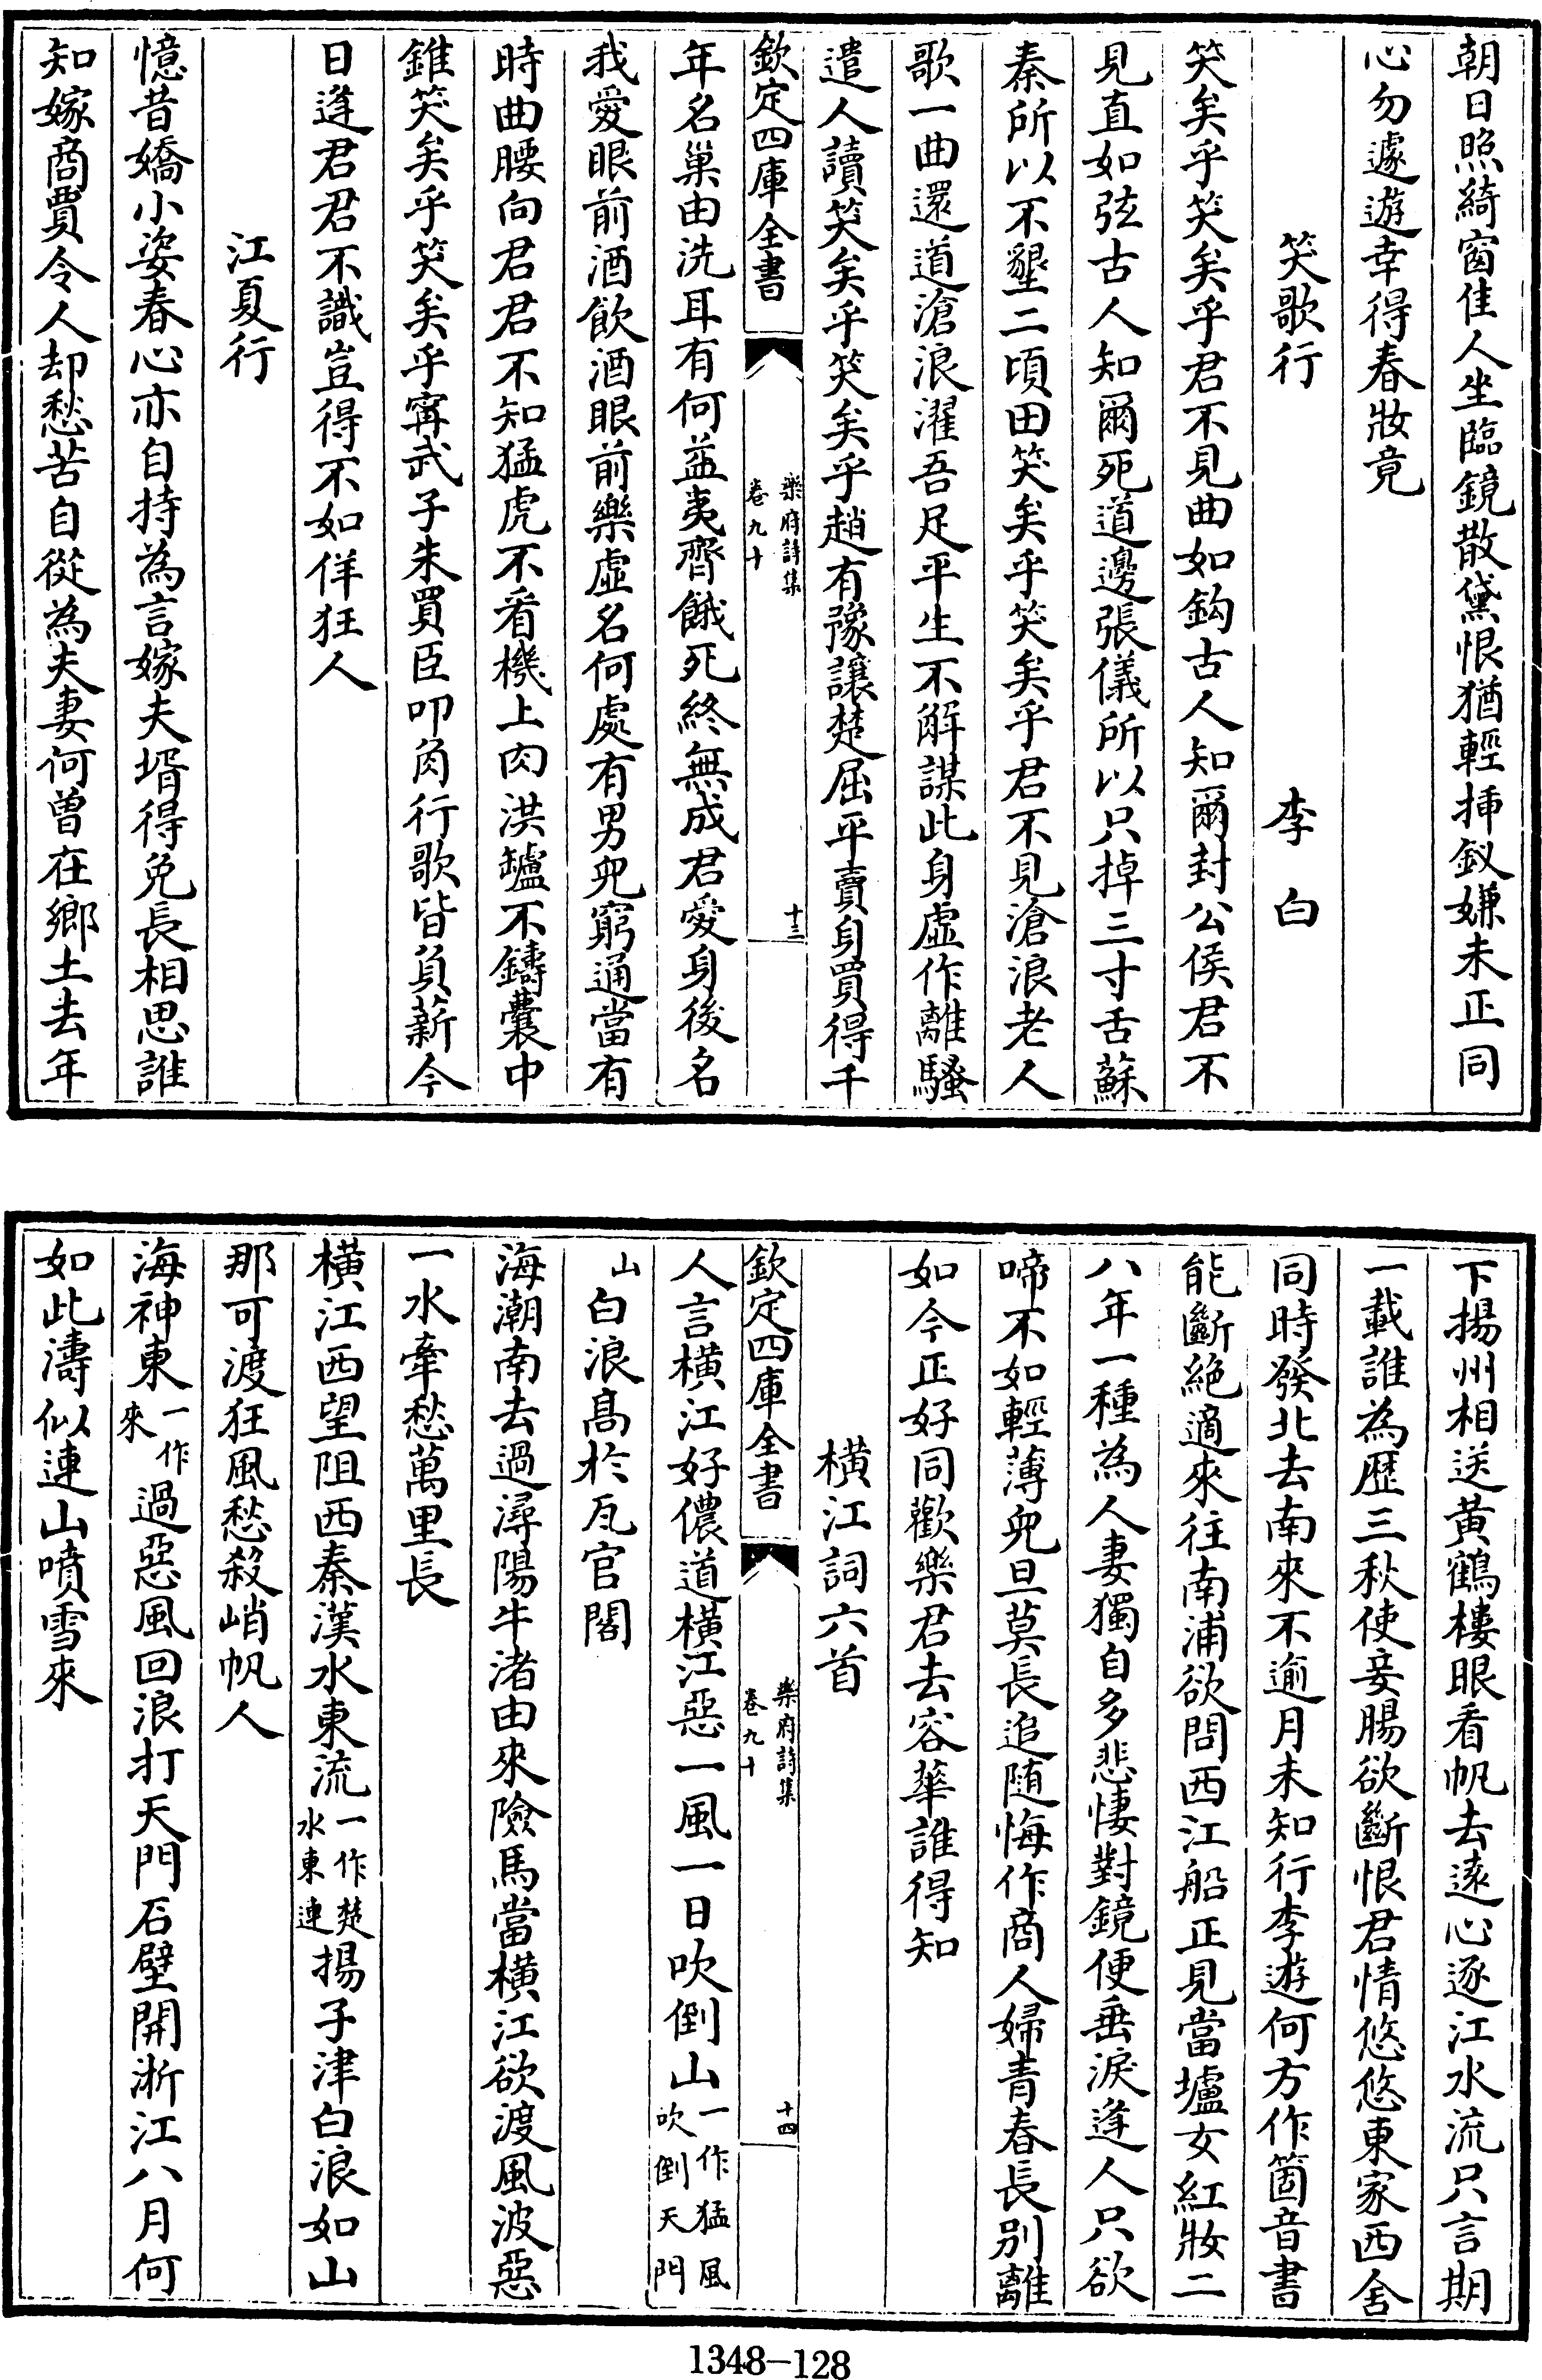 朝日照綺窗佳人坐臨鏡散黛恨猶輕挿釵嫌未正同
心勿遽遊幸得春妝竟
笑歌行 李白
笑矣乎笑矣乎君不見曲如鈎古人知爾封公侯君不
見直如弦古人知爾死道邊張儀所以只掉三寸舌蘇
秦所以不墾二頃田笑矣乎笑矣乎君不見滄浪老人
歌一曲還道滄浪濯吾足平生不解謀此身虛作離騷
遣人讀笑矣乎笑矣乎趙有豫讓楚屈平賣身買得千
欽定四庫全書 樂府詩集 卷九十 十三
年名巢由洗耳有何益夷齊餓死終無成君愛身後名
我愛眼前酒飲酒眼前樂虛名何處有男兒窮通當有
時曲腰向君君不知猛虎不看機上肉洪罏不鑄囊中
錐笑矣乎笑矣乎甯武子朱買臣叩角行歌皆負薪今
日逢君君不識豈得不如佯狂人
江夏行
憶昔嬌小姿春心亦自持為言嫁夫壻得免長相思誰
知嫁商賈令人却愁苦自從為夫妻何曾在鄉土去年
下揚州相送黄鶴樓眼看帆去遠心逐江水流只言期
一載誰為歴三秋使妾腸欲斷恨君情悠悠東家西舍
同時發北去南來不逾月未知行李遊何方作箇音書
能斷絶適來往南浦欲問西江船正見當壚女紅妝二
八年一種為人妻獨自多悲悽對鏡便垂淚逢人只欲
啼不如輕薄兒旦莫長追隨悔作商人婦青春長别離
如今正好同歡樂君去容華誰得知
橫江詞六首
欽定四庫全書 樂府詩集 卷九十 十四
人言橫江好儂道橫江惡一風一日吹倒山一作猛風吹倒天門
山白浪髙於瓦官閣
海潮南去過潯陽牛渚由來險馬當橫江欲渡風波惡
一水牽愁萬里長
橫江西望阻西秦漢水東流一作楚水東連揚子津白浪如山
那可渡狂風愁殺峭帆人
海神東一作來過惡風回浪打天門石壁開浙江八月何
如此濤似連山噴雪來
1348-128